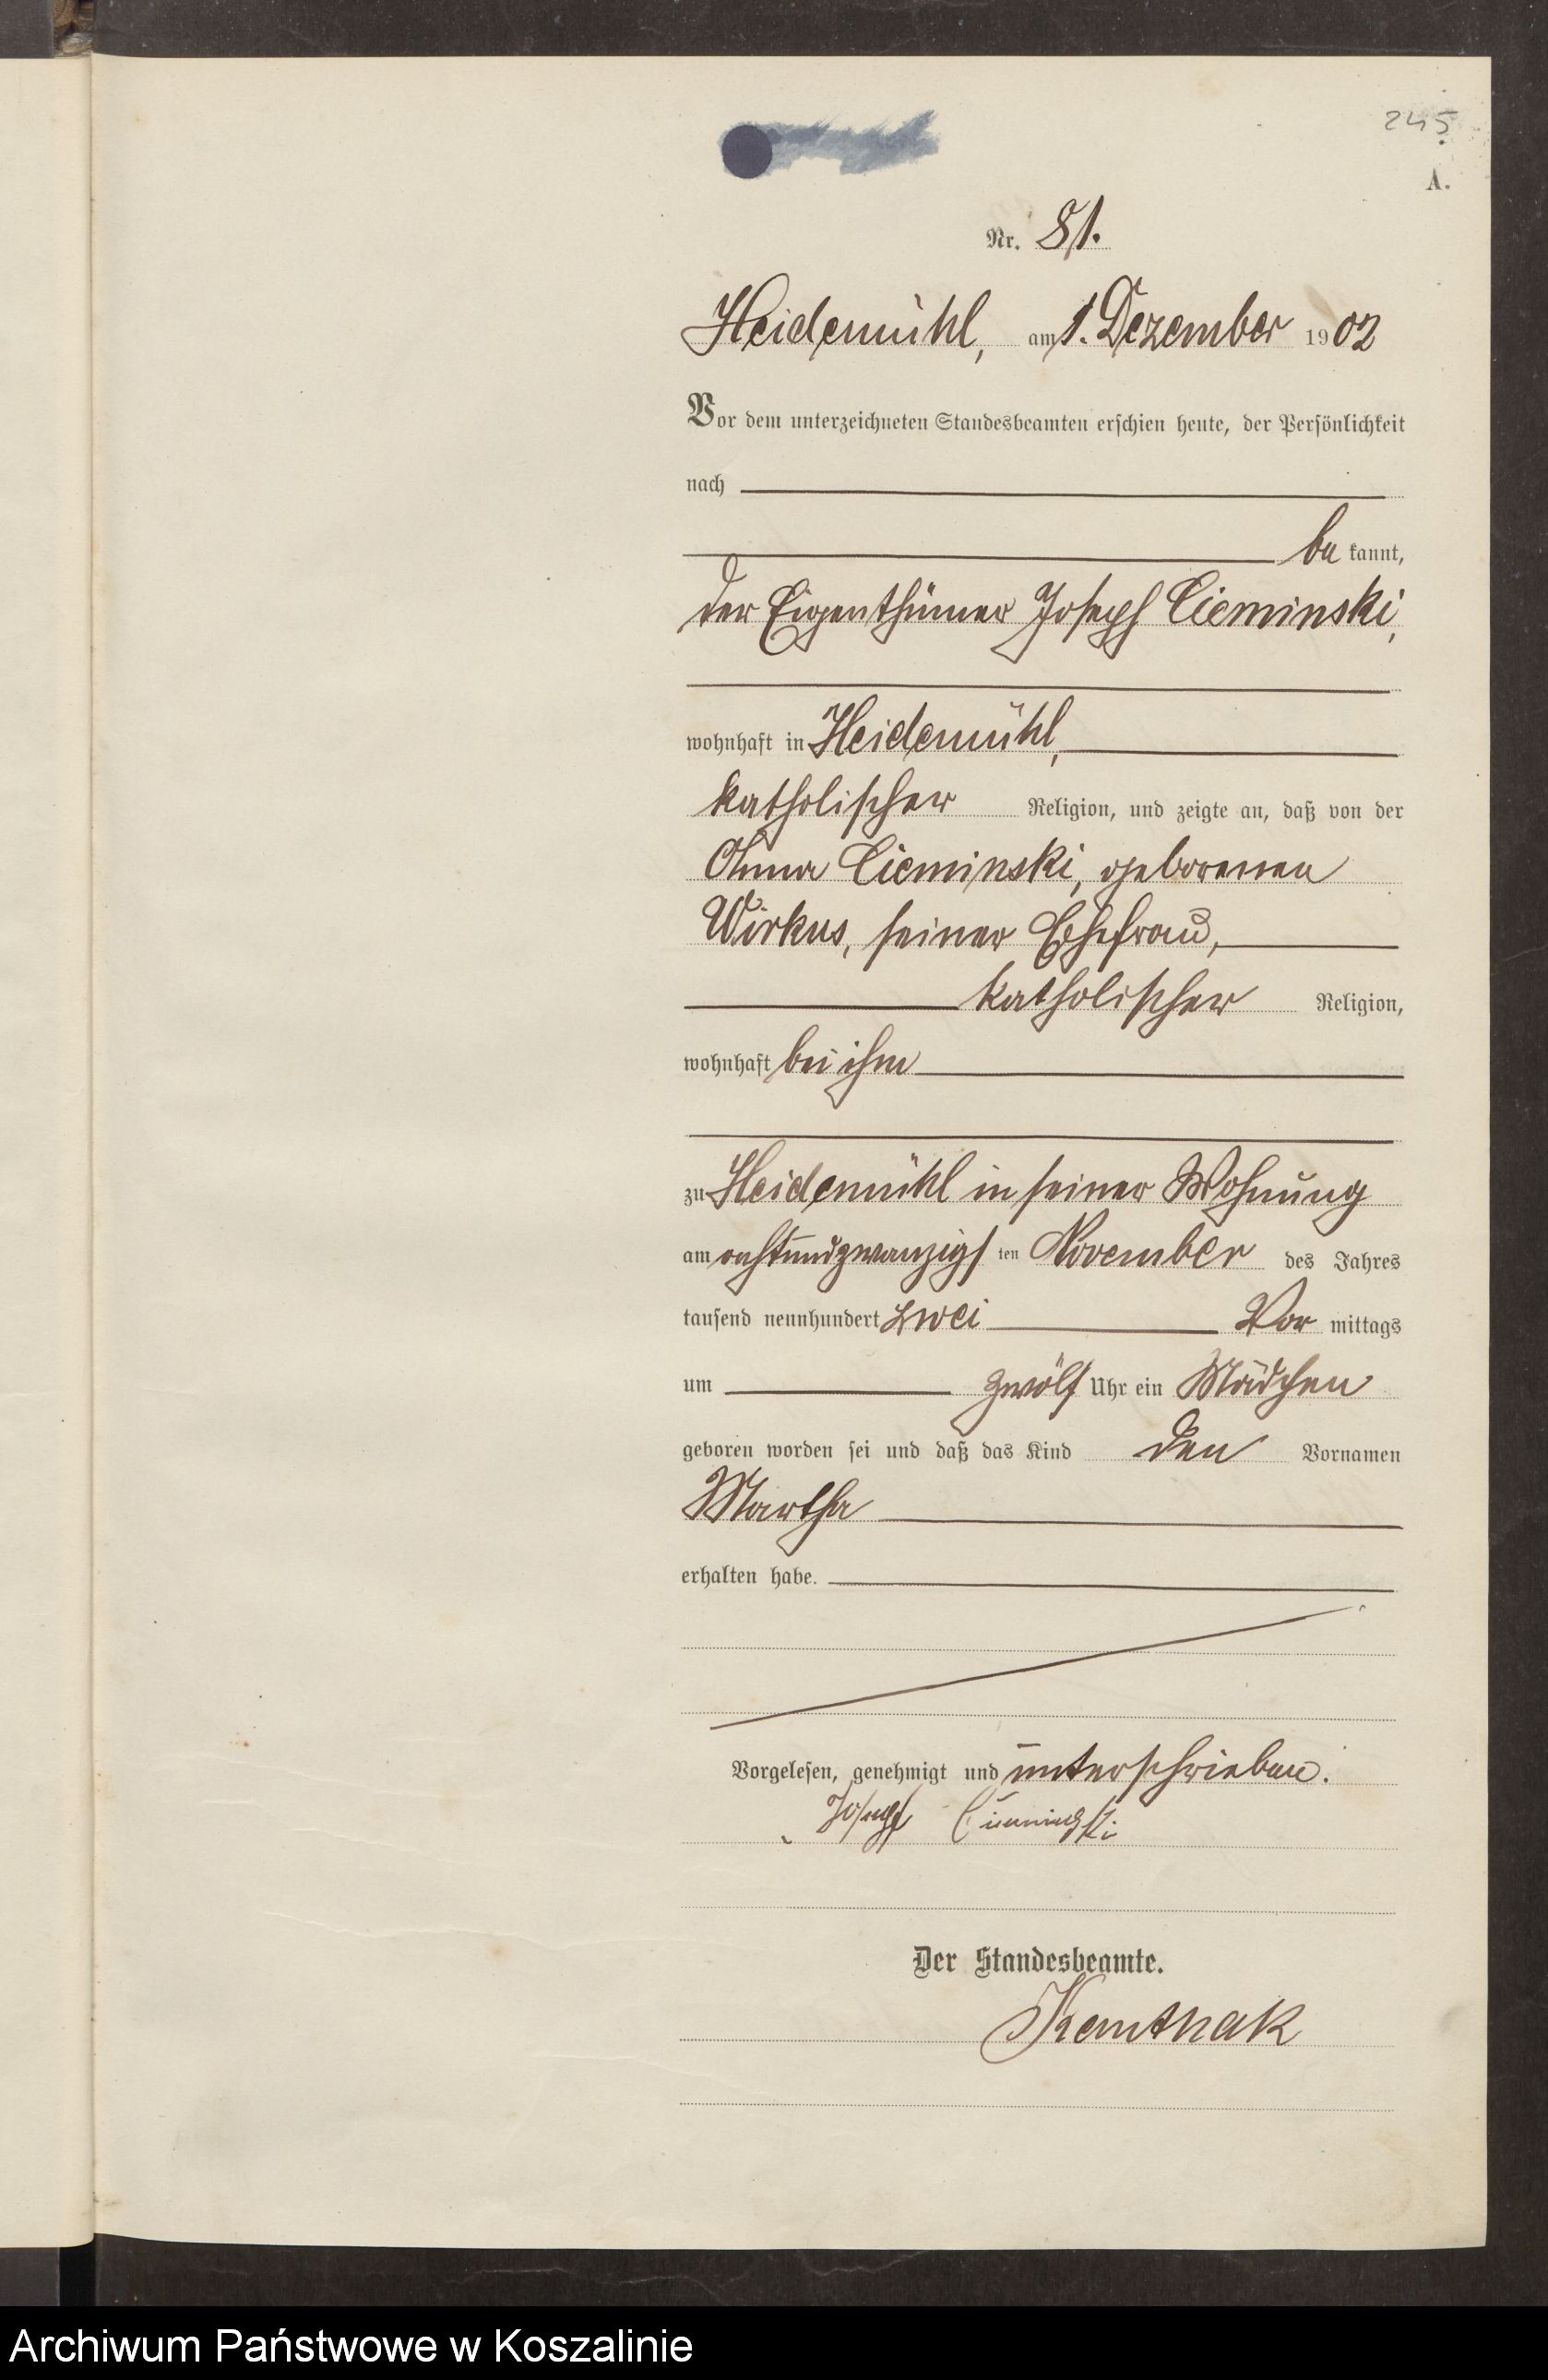 245
A.
Nr. 81.
Heidemühl, am 1. Dezember 1902
Vor dem unterzeichneten Standesbeamten erschien heute, der Persönlichkeit
nach
be kannt,
der Eigenthümer Joseph Cieminski,
wohnhaft in Heidemühl,
katholischer Religion, und zeigte an, daß von der
Anna Cieminski, geborenen
Wirkus, seiner Ehefrau,
katholischer Religion,
wohnhaft bei ihm
zu Heidemühl in seiner Wohnung
am achtundzwanzigsten November des Jahres
tausend neunhundert zwei Vor mittags
um zwölf Uhr ein Mädchen
geboren worden sei und daß das Kind den Vornamen
Martha
erhalten habe.
Vorgelesen, genehmigt und unterschrieben.
Joseph Cieminski
Der Standesbeamte.
Archiwum Państwowe w Koszalinie